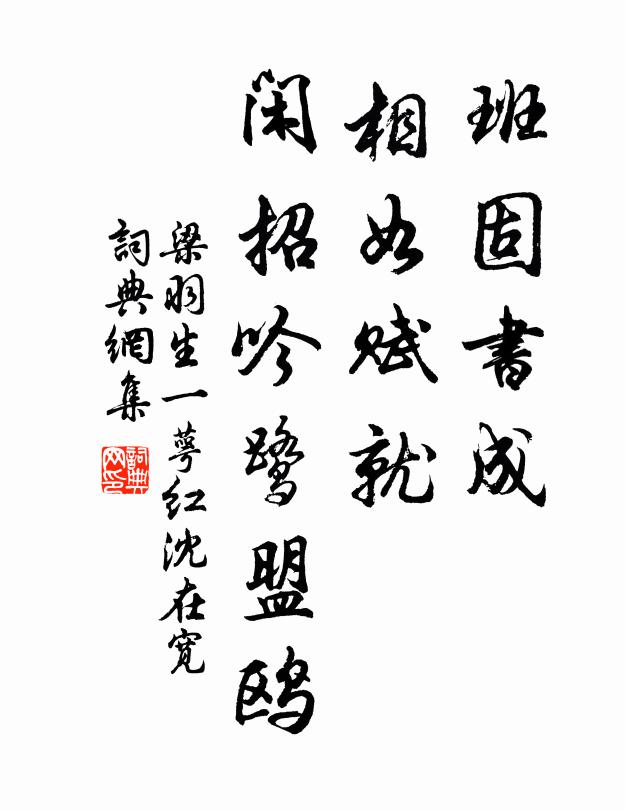 班固書成
相如赋就
闲招吟鷺盟鸥
梁羽生一萼红沈在寛
詞典網集
詞典网印